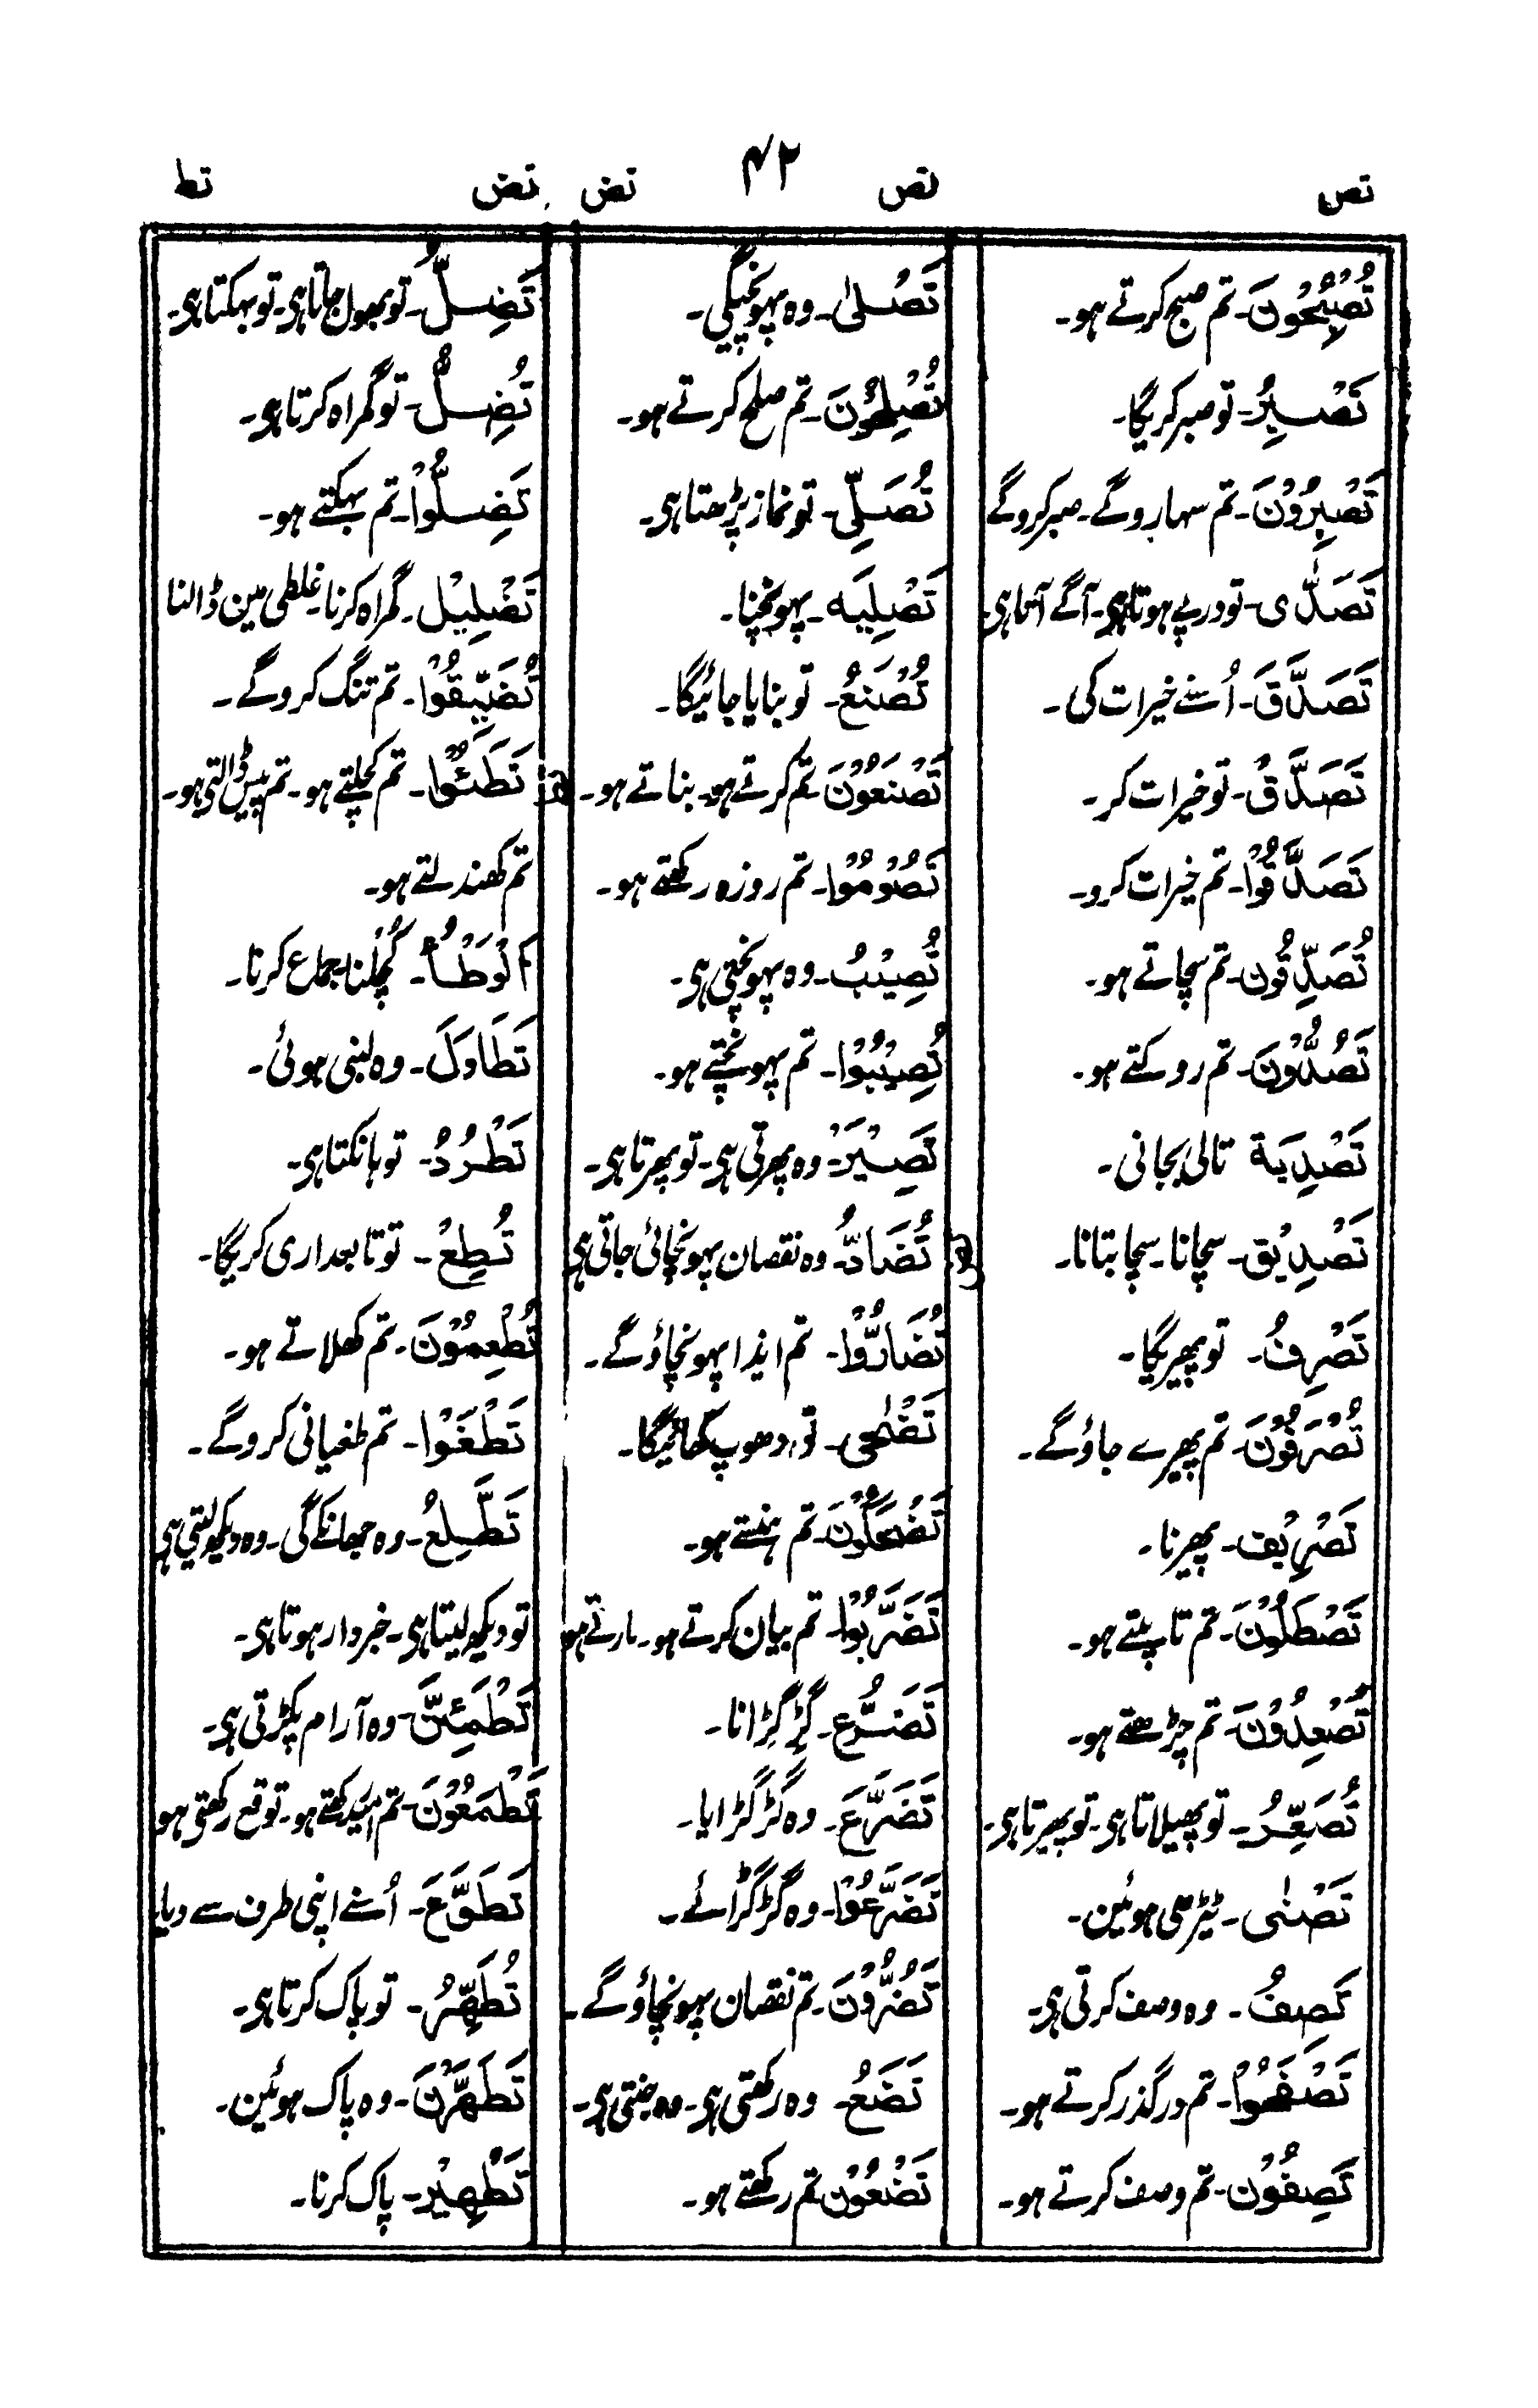 تص تص ۴۲ تض تض تط
تُصْبِحُونَ۔ تم صبح کرتے ہو۔
تَصْبِرُ۔ تو صبر کریگا۔
تَصْبِرُوْنَ۔ تم سہاروگے۔ صبر کروگے
تَصَدّٰی۔ تو درپے ہوتا ہی۔ آگے آتا ہی۔
تَصَدَّقَ۔ اُسنے خیرات کی۔
تَصَدَّقْ۔ تو خیرات کر۔
تَصَدَّقُوْا۔ تم خیرات کرو۔
تُصَدِّقُون۔ تم سچاتے ہو۔
تَصُدُّوْنَ۔ تم روکتے ہو۔
تَصْدِیَة تالی بجانی۔
تَصْدِیْق۔ سچانا۔ سچا بتانا۔
تَصْرِفْ۔ تو پھیریگا۔
تُصْرَفُوْنَ۔ تم پھیرے جاؤگے۔
تَصْرِیْف۔ پھیرنا۔
تَصْطَلُوْنَ۔ تم تاپتے ہو۔
تُصْعِدُوْنَ۔ تم چڑھتے ہو۔
تُصَعِّرْ۔ تو پھیلاتا ہی۔ تو پھیرتا ہی۔
تَصْغٰی۔ ٹیڑھی ہوئین۔
تَصِفُ۔ وہ وصف کرتی ہی۔
تَصْفَحُوْا۔ تم درگذر کرتے ہو۔
تَصِفُوْن۔ تم وصف کرتے ہو۔
تَصْلیٰ۔ وہ پہونچیگی۔
تُصْلِحُوْنَ۔ تم صلح کرتے ہو۔
تُصَلِّی۔ تو نماز پڑھتا ہی۔
تَصْلِیَه۔ پہونچنا۔
تُصْنَعُ۔ تو بنایا جائیگا۔
تَصْنَعُوْنَ۔ تم کرتے ہو۔ بناتے ہو۔
تَصُوْمُوْا۔ تم روزہ رکھتے ہو۔
تُصِیْبُ۔ وہ پہونچتی ہی۔
تُصِیْبُوْا۔ تم پہونچتے ہو۔
تَصِیْرُ۔ وہ پھرتی ہی۔ تو پھرتا ہی۔
تُضَارُّ۔ وہ نقصان پہونچائی جاتی ہی
تُضَارُّوْا۔ تم ایذا پہونچاؤگے۔
تَضْحٰی۔ تو دھوپ کھائیگا۔
تَضْحَكُوْنَ۔ تم ہنستے ہو۔
تَضْرِبُوْا۔ تم بیان کرتے ہو۔ مارتے ہو
تَضَرُّع۔ گِڑگِڑانا۔
تَضَرَّعَ۔ وہ گڑگڑایا۔
تَضَرَّعُوْا۔ وہ گڑگڑائے۔
تَضُرُّوْنَ۔ تم نقصان پہونچاؤگے۔
تَضَعُ۔ وہ رکھتی ہی۔ وہ جنتی ہی۔
تَضَعُوْن تم رکھتے ہو۔
تَضِلُّ۔ تو بھول جاتا ہی۔ تو بہکتا ہی۔
تُضِلُّ۔ تو گمراہ کرتا ہی۔
تَضِلُّوْا۔ تم بہکتے ہو۔
تَضْلِیْل۔ گمراہ کرنا۔ غلطی مین ڈالنا
تُضَیِّقُوْا۔ تم تنگ کروگے۔
تَطَئُوْا۔ تم کچلتے ہو۔ تم پیس ڈالتی ہو۔
تم کھندلتے ہو۔
اَلْوَطْأُ۔ کُچلنا۔ جماع کرنا۔
تَطَاوَلَ۔ وہ لنبی ہوئی۔
تَطْرُدْ۔ تو ہانکتا ہی۔
تُطِعْ۔ تو تابعداری کریگا۔
تُطْعِمُوْنَ۔ تم کھلاتے ہو۔
تَطْغَوْا۔ تم طغیانی کروگے۔
تَطَّلِعُ۔ وہ جھانکے گی۔ وہ دیکھ لیتی ہی
تو دیکھ لیتا ہی۔ خبردار ہوتا ہی۔
تَطْمَئِنَّ۔ وہ آرام پکڑتی ہی۔
تَطْمَعُوْنَ۔ تم امید رکھتے ہو۔ توقع رکھتی ہو
تَطَوَّعَ۔ اُسنے اپنی طرف سے دیا۔
تُطَهِّرُ۔ تو پاک کرتا ہی۔
تَطَهَّرْنَ۔ وہ پاک ہوئین۔
تَطْهِیْر۔ پاک کرنا۔